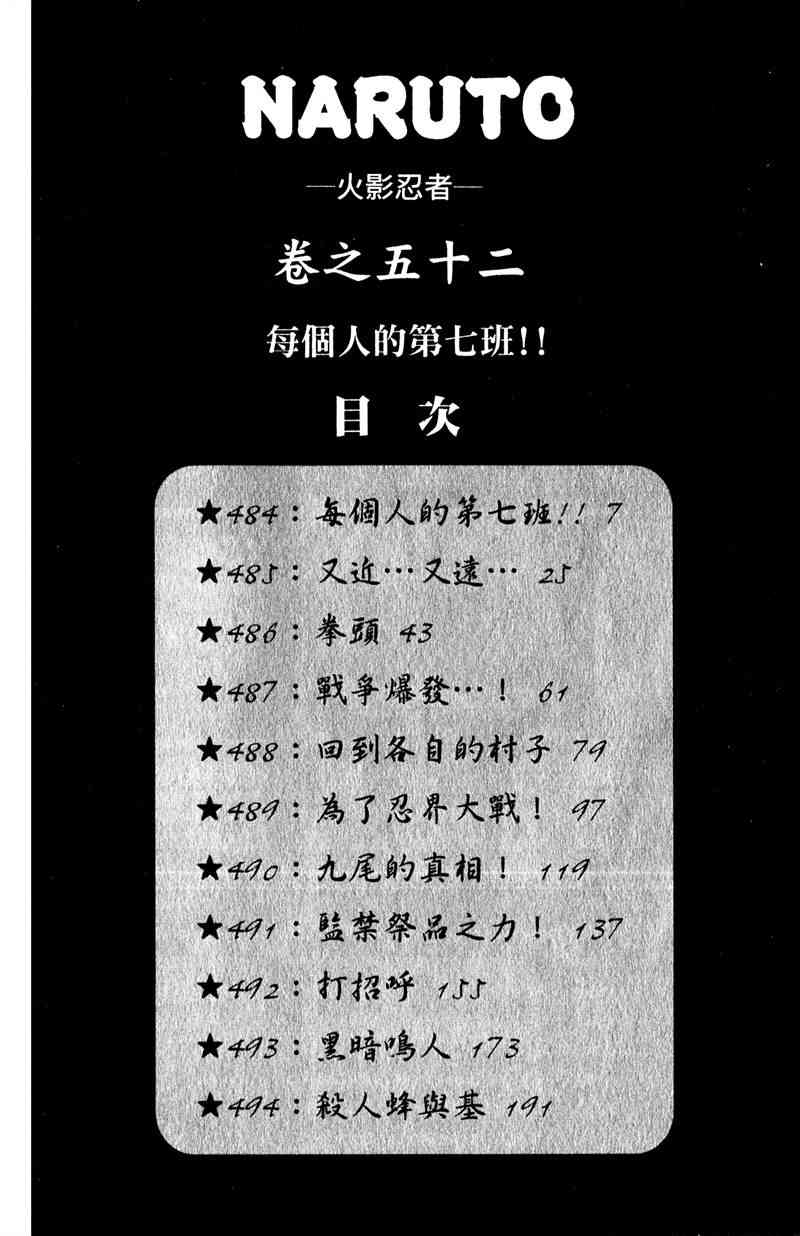 NARUTO
—火影忍者—
卷之五十二
每個人的第七班!!
目 次
★484：每個人的第七班!! 7
★485：又近…又遠… 25
★486：拳頭 43
★487：戰爭爆發…！ 61
★488：回到各自的村子 79
★489：為了忍界大戰！ 97
★490：九尾的真相！ 119
★491：監禁祭品之力！ 137
★492：打招呼 155
★493：黑暗鳴人 173
★494：殺人蜂與基 191